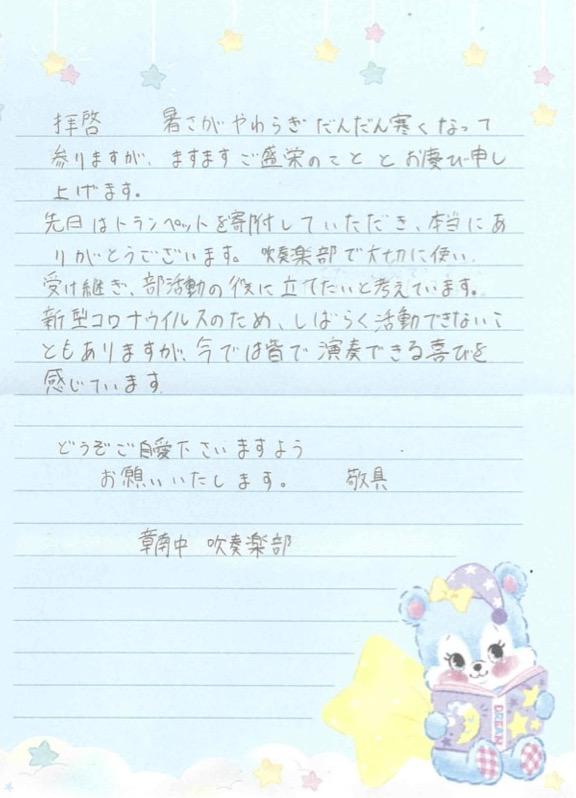 拝啓　暑さがやわらぎだんだん寒くなって
参りますが、ますますご盛栄のこととお慶び申し
上げます。
先日はトランペットを寄附していただき、本当にあ
りがとうございます。吹奏楽部で大切に使い、
受け継ぎ、部活動の役に立てたいと考えています。
新型コロナウイルスのため、しばらく活動できないこ
ともありますが、今では皆で演奏できる喜びを
感じています。
どうぞご自愛下さいますよう
お願いいたします。　敬具
章南中　吹奏楽部
DREAM